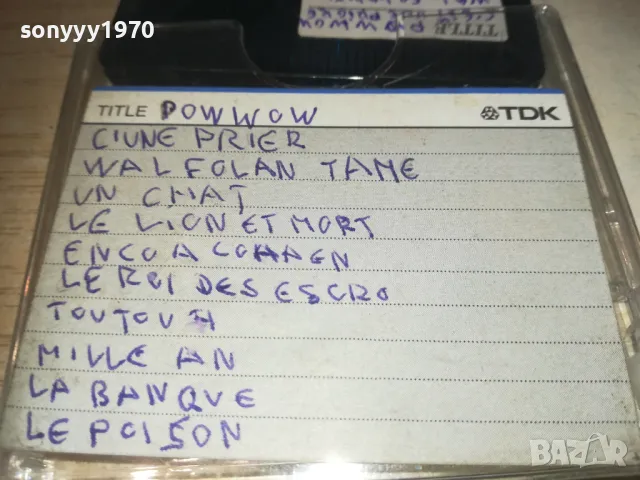 sonyyy1970
TITLE
TITLE POWWOW TDK
CIUNE PRIER
WAL FOLAN TAME
UN CHAT
LE LION ET MORT
ENCO A COHHEN
LE ROI DES ESCRO
TOUTOU
MILLE AN
LA BANQUE
LE POISON
BAZAR